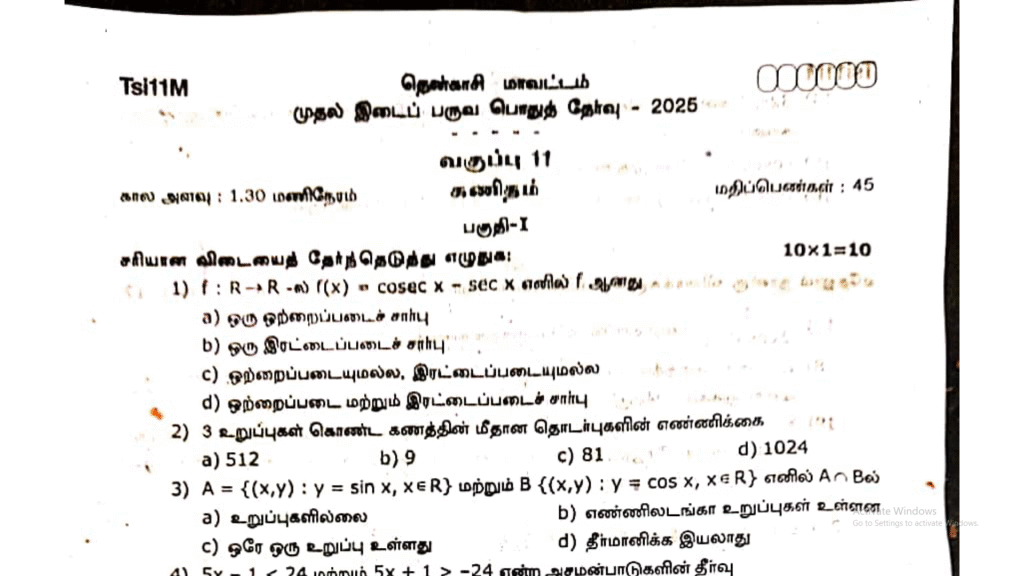 Tsi11M
தென்காசி மாவட்டம்
முதல் இடைப் பருவ பொதுத் தேர்வு - 2025
- - - - -
வகுப்பு 11
கால அளவு : 1.30 மணிநேரம் கணிதம் மதிப்பெண்கள் : 45
பகுதி-I
சரியான விடையைத் தேர்ந்தெடுத்து எழுதுக: 10×1=10
1) f : R→R -ல் f(x) = cosec x - sec x எனில் f ஆனது
a) ஒரு ஒற்றைப்படைச் சார்பு
b) ஒரு இரட்டைப்படைச் சார்பு
c) ஒற்றைப்படையுமல்ல, இரட்டைப்படையுமல்ல
d) ஒற்றைப்படை மற்றும் இரட்டைப்படைச் சார்பு
2) 3 உறுப்புகள் கொண்ட கணத்தின் மீதான தொடர்புகளின் எண்ணிக்கை
a) 512 b) 9 c) 81 d) 1024
3) A = {(x,y) : y = sin x, x∈R} மற்றும் B {(x,y) : y = cos x, x∈R} எனில் A∩Bல்
a) உறுப்புகளில்லை b) எண்ணிலடங்கா உறுப்புகள் உள்ளன
c) ஒரே ஒரு உறுப்பு உள்ளது d) தீர்மானிக்க இயலாது
4) 5x - 1 < 24 மற்றும் 5x + 1 > -24 என்ற அசமன்பாடுகளின் தீர்வு
Activate Windows
Go to Settings to activate Windows.